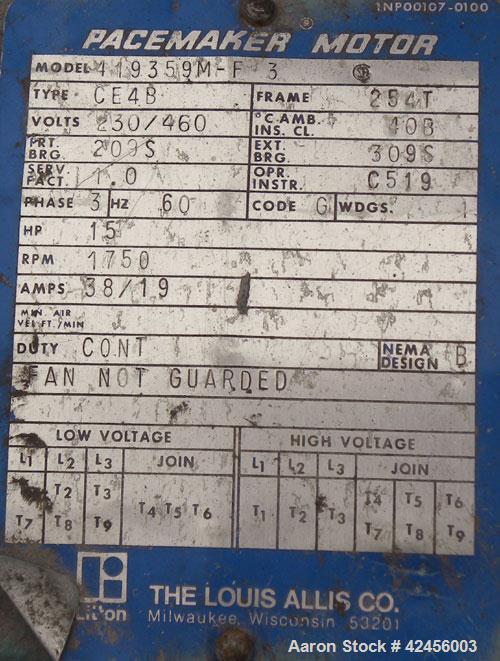 1NP00107-0100
PACEMAKER® MOTOR
MODEL 419359M-F 3
TYPE CE4B FRAME 254T
VOLTS 230/460 °C AMB. INS. CL. 40B
FRT. BRG. 209S EXT. BRG. 309S
SERV. FACT. 1.0 OPR. INSTR. C519
PHASE 3 HZ 60 CODE G WDGS. 1
HP 15
RPM 1750
AMPS 38/19
MIN. AIR VEL. FT./MIN
DUTY CONT NEMA DESIGN B
FAN NOT GUARDED
LOW VOLTAGE HIGH VOLTAGE
L1 L2 L3 JOIN L1 L2 L3 JOIN
T2 T3 T4 T5 T6
T4 T5 T6 T1 T2 T3
T7 T8 T9 T7 T8 T9
Litton THE LOUIS ALLIS CO.
Milwaukee, Wisconsin 53201
Aaron Stock # 42456003